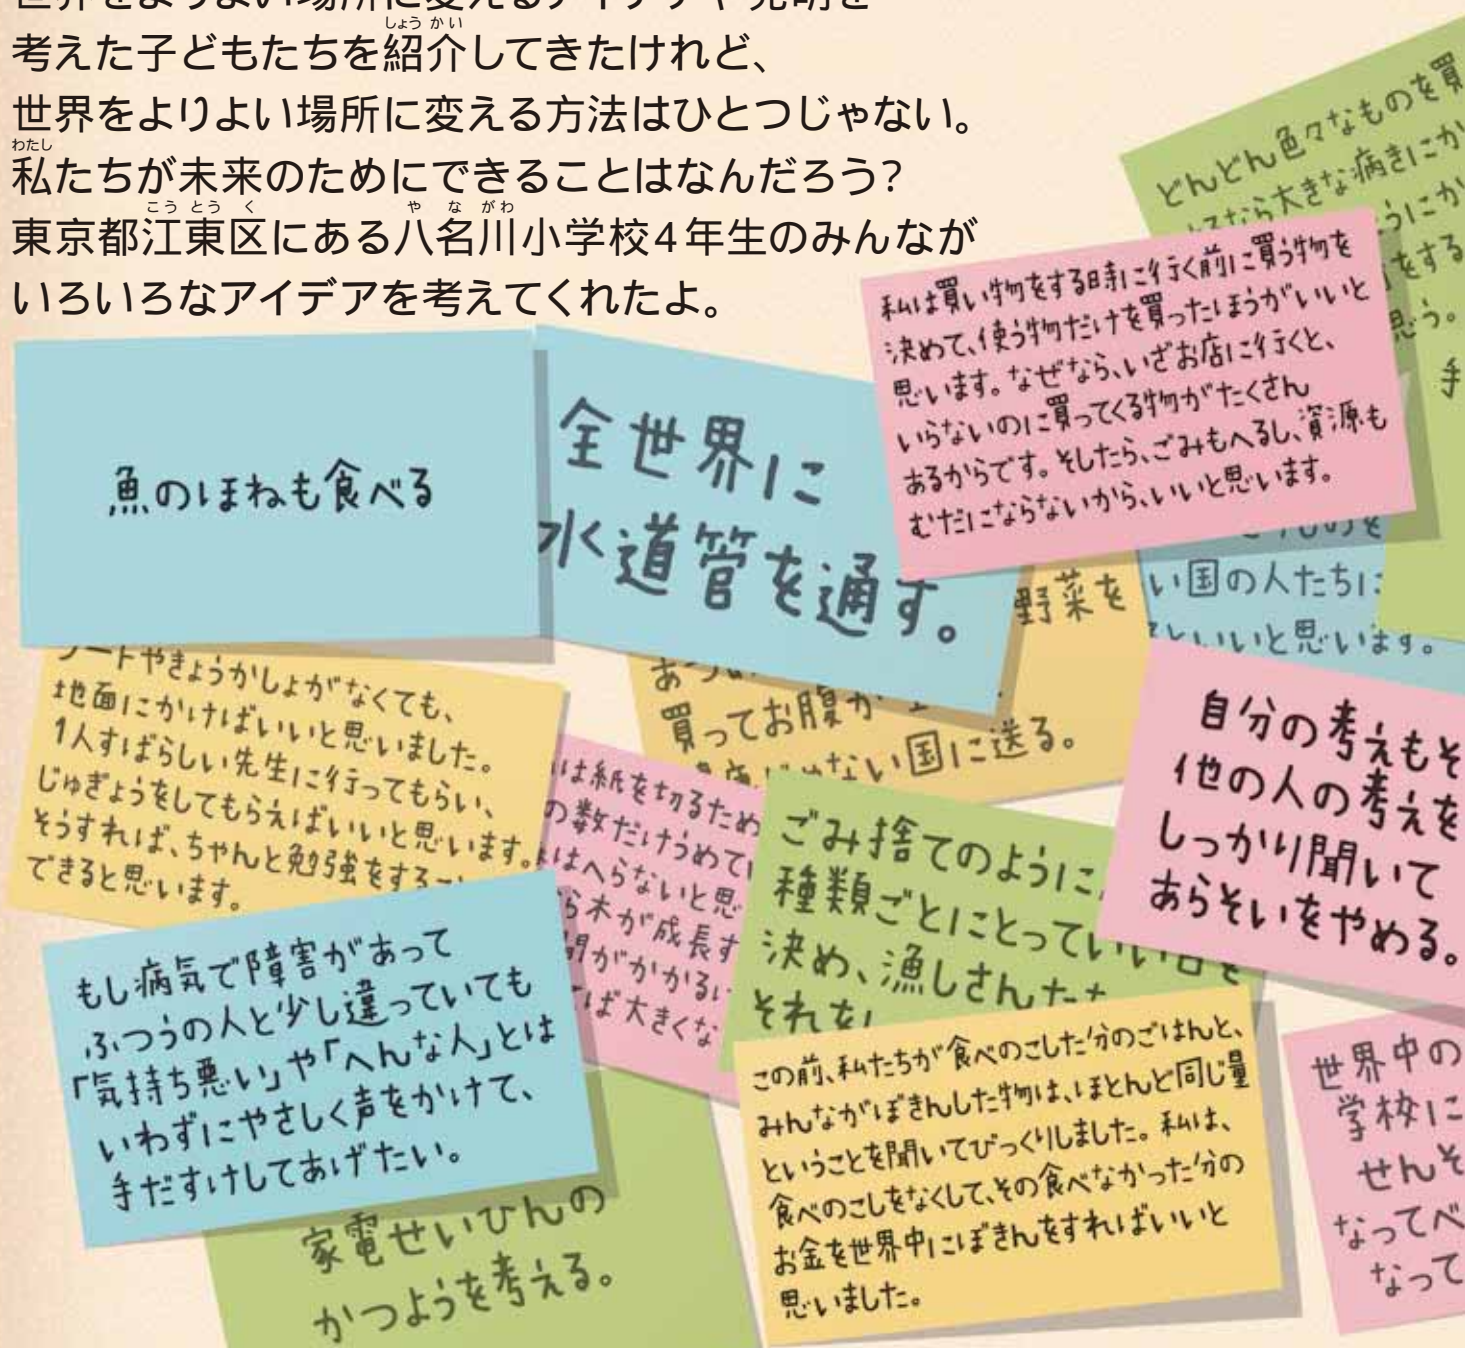 世界をよりよい場所に変えるアイデアや発明を
考えた子どもたちを紹介してきたけれど、
世界をよりよい場所に変える方法はひとつじゃない。
私たちが未来のためにできることはなんだろう?
東京都江東区にある八名川小学校4年生のみんなが
いろいろなアイデアを考えてくれたよ。
どんどん色々なものを買
大きな病きにか
うにか
をする
思う。
手
私は買い物をする時に行く前に買う物を
決めて、使う物だけを買ったほうがいいと
思います。なぜなら、いざお店に行くと、
いらないのに買ってくる物がたくさん
あるからです。そしたら、ごみもへるし、資源も
むだにならないから、いいと思います。
魚のほねも食べる
全世界に
水道管を通す。
野菜を
買ってお腹が
ない国に送る。
い国の人たちに
といいと思います。
ノートやきょうかしょがなくても、
地面にかけばいいと思いました。
1人すばらしい先生に行ってもらい、
じゅぎょうをしてもらえばいいと思います。
そうすれば、ちゃんと勉強をする
できると思います。
は紙を切るため
の数だけうめて
はへらないと思
ら木が成長す
間がかかる
ば大きくな
ごみ捨てのように
種類ごとにとっていい日を
決め、漁しさんた
それを
自分の考えもそ
他の人の考えを
しっかり聞いて
あらそいをやめる。
もし病気で障害があって
ふつうの人と少し違っていても
「気持ち悪い」や「へんな人」とは
いわずにやさしく声をかけて、
手だすけしてあげたい。
家電せいひんの
かつようを考える。
この前、私たちが食べのこした分のごはんと、
みんながぼきんした物は、ほとんど同じ量
ということを聞いてびっくりしました。私は、
食べのこしをなくして、その食べなかった分の
お金を世界中にぼきんをすればいいと
思いました。
世界中の
学校に
せんそ
なってべ
なって